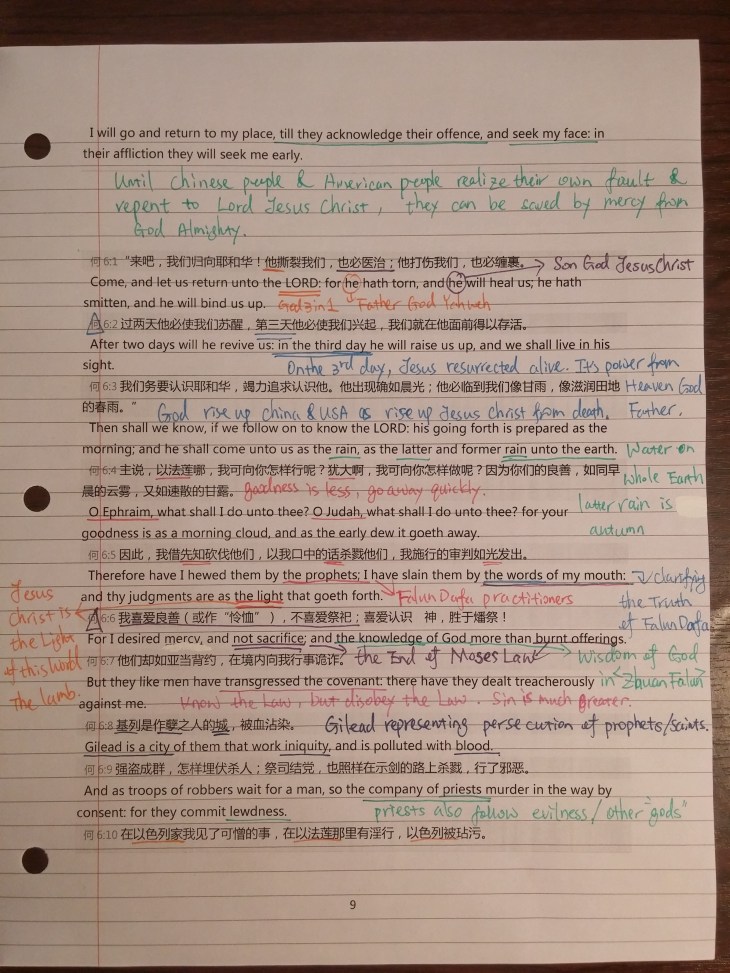 I will go and return to my place, till they acknowledge their offence, and seek my face: in
their affliction they will seek me early.
Until Chinese people & American people realize their own fault &
repent to Lord Jesus Christ, they can be saved by mercy from
God Almighty.
何 6:1 “来吧，我们归向耶和华！他撕裂我们，也必医治；他打伤我们，也必缠裹。
Son God Jesus Christ
Come, and let us return unto the LORD: for he hath torn, and he will heal us; he hath
smitten, and he will bind us up.
God 3 in 1
Father God Yahweh
何 6:2 过两天他必使我们苏醒，第三天他必使我们兴起，我们就在他面前得以存活。
After two days will he revive us: in the third day he will raise us up, and we shall live in his
sight.
On the 3rd day, Jesus resurrected alive. It's power from
Heaven God
Father.
何 6:3 我们务要认识耶和华，竭力追求认识他。他出现确如晨光；他必临到我们像甘雨，像滋润田地
的春雨。”
God rise up China & USA as rise up Jesus Christ from death.
Then shall we know, if we follow on to know the LORD: his going forth is prepared as the
morning; and he shall come unto us as the rain, as the latter and former rain unto the earth.
Water on
whole Earth
何 6:4 主说，以法莲哪，我可向你怎样行呢？犹大啊，我可向你怎样做呢？因为你们的良善，如同早
晨的云雾，又如速散的甘露。
goodness is less, go away quickly.
latter rain is
autumn
O Ephraim, what shall I do unto thee? O Judah, what shall I do unto thee? for your
goodness is as a morning cloud, and as the early dew it goeth away.
何 6:5 因此，我借先知砍伐他们，以我口中的话杀戮他们，我施行的审判如光发出。
Therefore have I hewed them by the prophets; I have slain them by the words of my mouth:
and thy judgments are as the light that goeth forth.
Falun Dafa practitioners
clarifying
the Truth
of Falun Dafa
Jesus
Christ is
the Light
of this world
The lamb.
何 6:6 我喜爱良善（或作“怜恤”），不喜爱祭祀；喜爱认识 神，胜于燔祭！
For I desired mercy, and not sacrifice; and the knowledge of God more than burnt offerings.
何 6:7 他们却如亚当背约，在境内向我行事诡诈。
the End of Moses Law
Wisdom of God
in <Zhuan Falun>
But they like men have transgressed the covenant: there have they dealt treacherously
against me.
Know the Law, but disobey the Law. Sin is much greater.
何 6:8 基列是作孽之人的城，被血沾染。
Gilead representing persecution of prophets/saints.
Gilead is a city of them that work iniquity, and is polluted with blood.
何 6:9 强盗成群，怎样埋伏杀人；祭司结党，也照样在示剑的路上杀戮，行了邪恶。
And as troops of robbers wait for a man, so the company of priests murder in the way by
consent: for they commit lewdness.
priests also follow evilness/other "gods"
何 6:10 在以色列家我见了可憎的事，在以法莲那里有淫行，以色列被玷污。
9